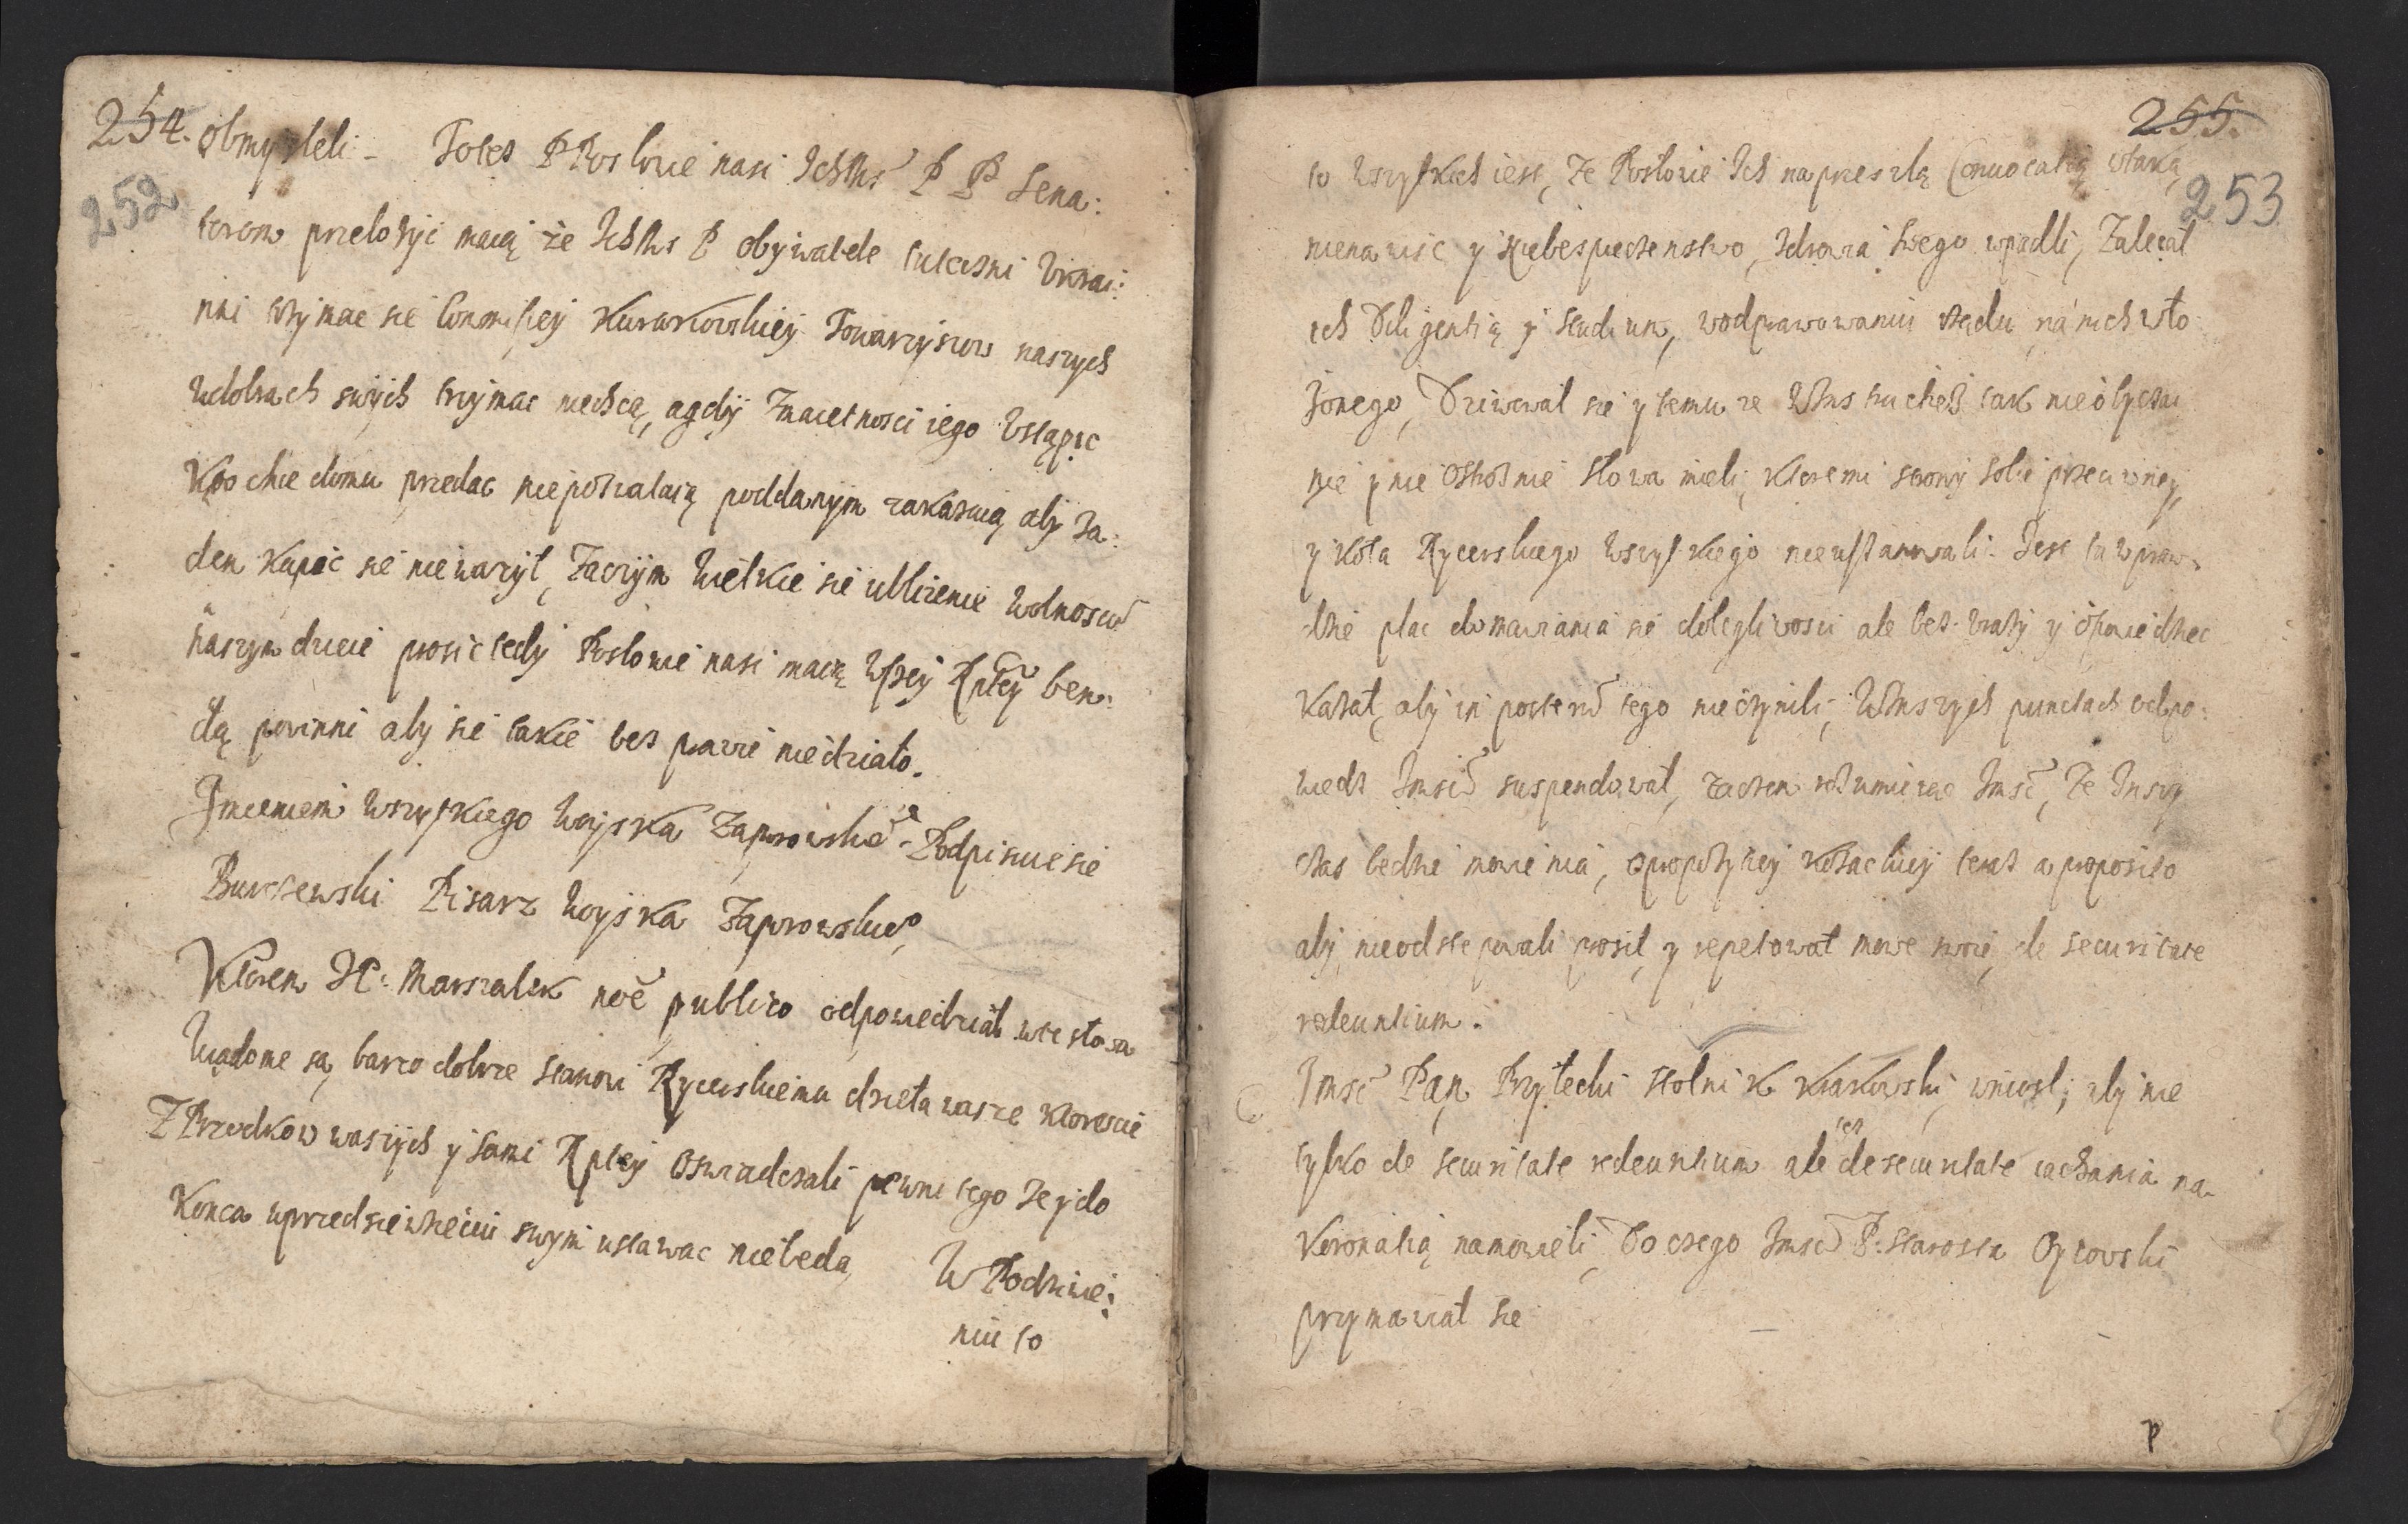 254.
252
obmysleli – Totez P Poslowie nasi Ichms P P Sena:
torom przelozyc maią że Ichms P obywatele tuteczni Ukrai:
nni trzymac sie Commissiey Kurukowskiey Towarzyszow naszych
wdobrach swych trzymac niechcą, agdy Zmaietnosci iego Ustąpic
Kto chce domu przedac niepozwalaią poddanym zakazuią aby Za:
den Kupic sie niewazył, Zaczym Wielkie sie ublizenie Wolnosciō
naszym dzieie prosic tedy Poslowie nasi maią Wszey Rptey ben:
dą powinni aby sie takie bez prawie niedziało.
Jmieniem Wszystkiego Woyska Zaporowskie Podpisuie sie
Burczewski Pisarz Woyska Zaporowskieo
Ktorem JP. Marszalek noe publico odpowiedział wte słowa
Wiadome są barzo dobrze stanowi Rycerskiemu dzieła wasze ktorescie
Z Przodkow waszych y sami Rptey oswiadczali pewni tego Ze y do
Konca wprzedsiewzieciu swym ustawac niebeda, W Podziwie:
niu to
255.
253
to wszystkich iest, Ze Posłowie Ich na przeszlą Convocatią wtaką
nienawisc y niebespieczenstwo, Zdrowia swego wpadli, Zalecał
ich Diligentią y studium, wodprawowaniu Vrzędu na nich wło
żonego, Dziwował sie y temu ze tak nieobyczai
nie y nie ostroznie słowa mieli, Ktoremi strony sobie przeciwney,
y Koła Rycerskiego wszystkiego nieuszanowali. Jest tu wpraw-
dzie plac domawiania sie dolegliwosci ale bez vrazy y opowiedziec
Kazał, aby in posterū tego nieczynili, W Inszych punctach odpo:
wiedz Jmsci suspendował, zaczem rozumieiąc Jmsc, Ze Inszy
czas bedzie mowienia, opropozyciey Kozackiey teraz a proposito
aby nieodstepowali prosił, y repetował mowe swoię de securitate
redeuntium.
Jmsc Pan Przyłecki stolnik Krakowski wniosł, aby nie
tylko de securitate redeuntium ale tez de securitate iachania na-
Koronatią namowieli, Do czego Jmsc P. Starosta Oycowski
przymawiał sie
P